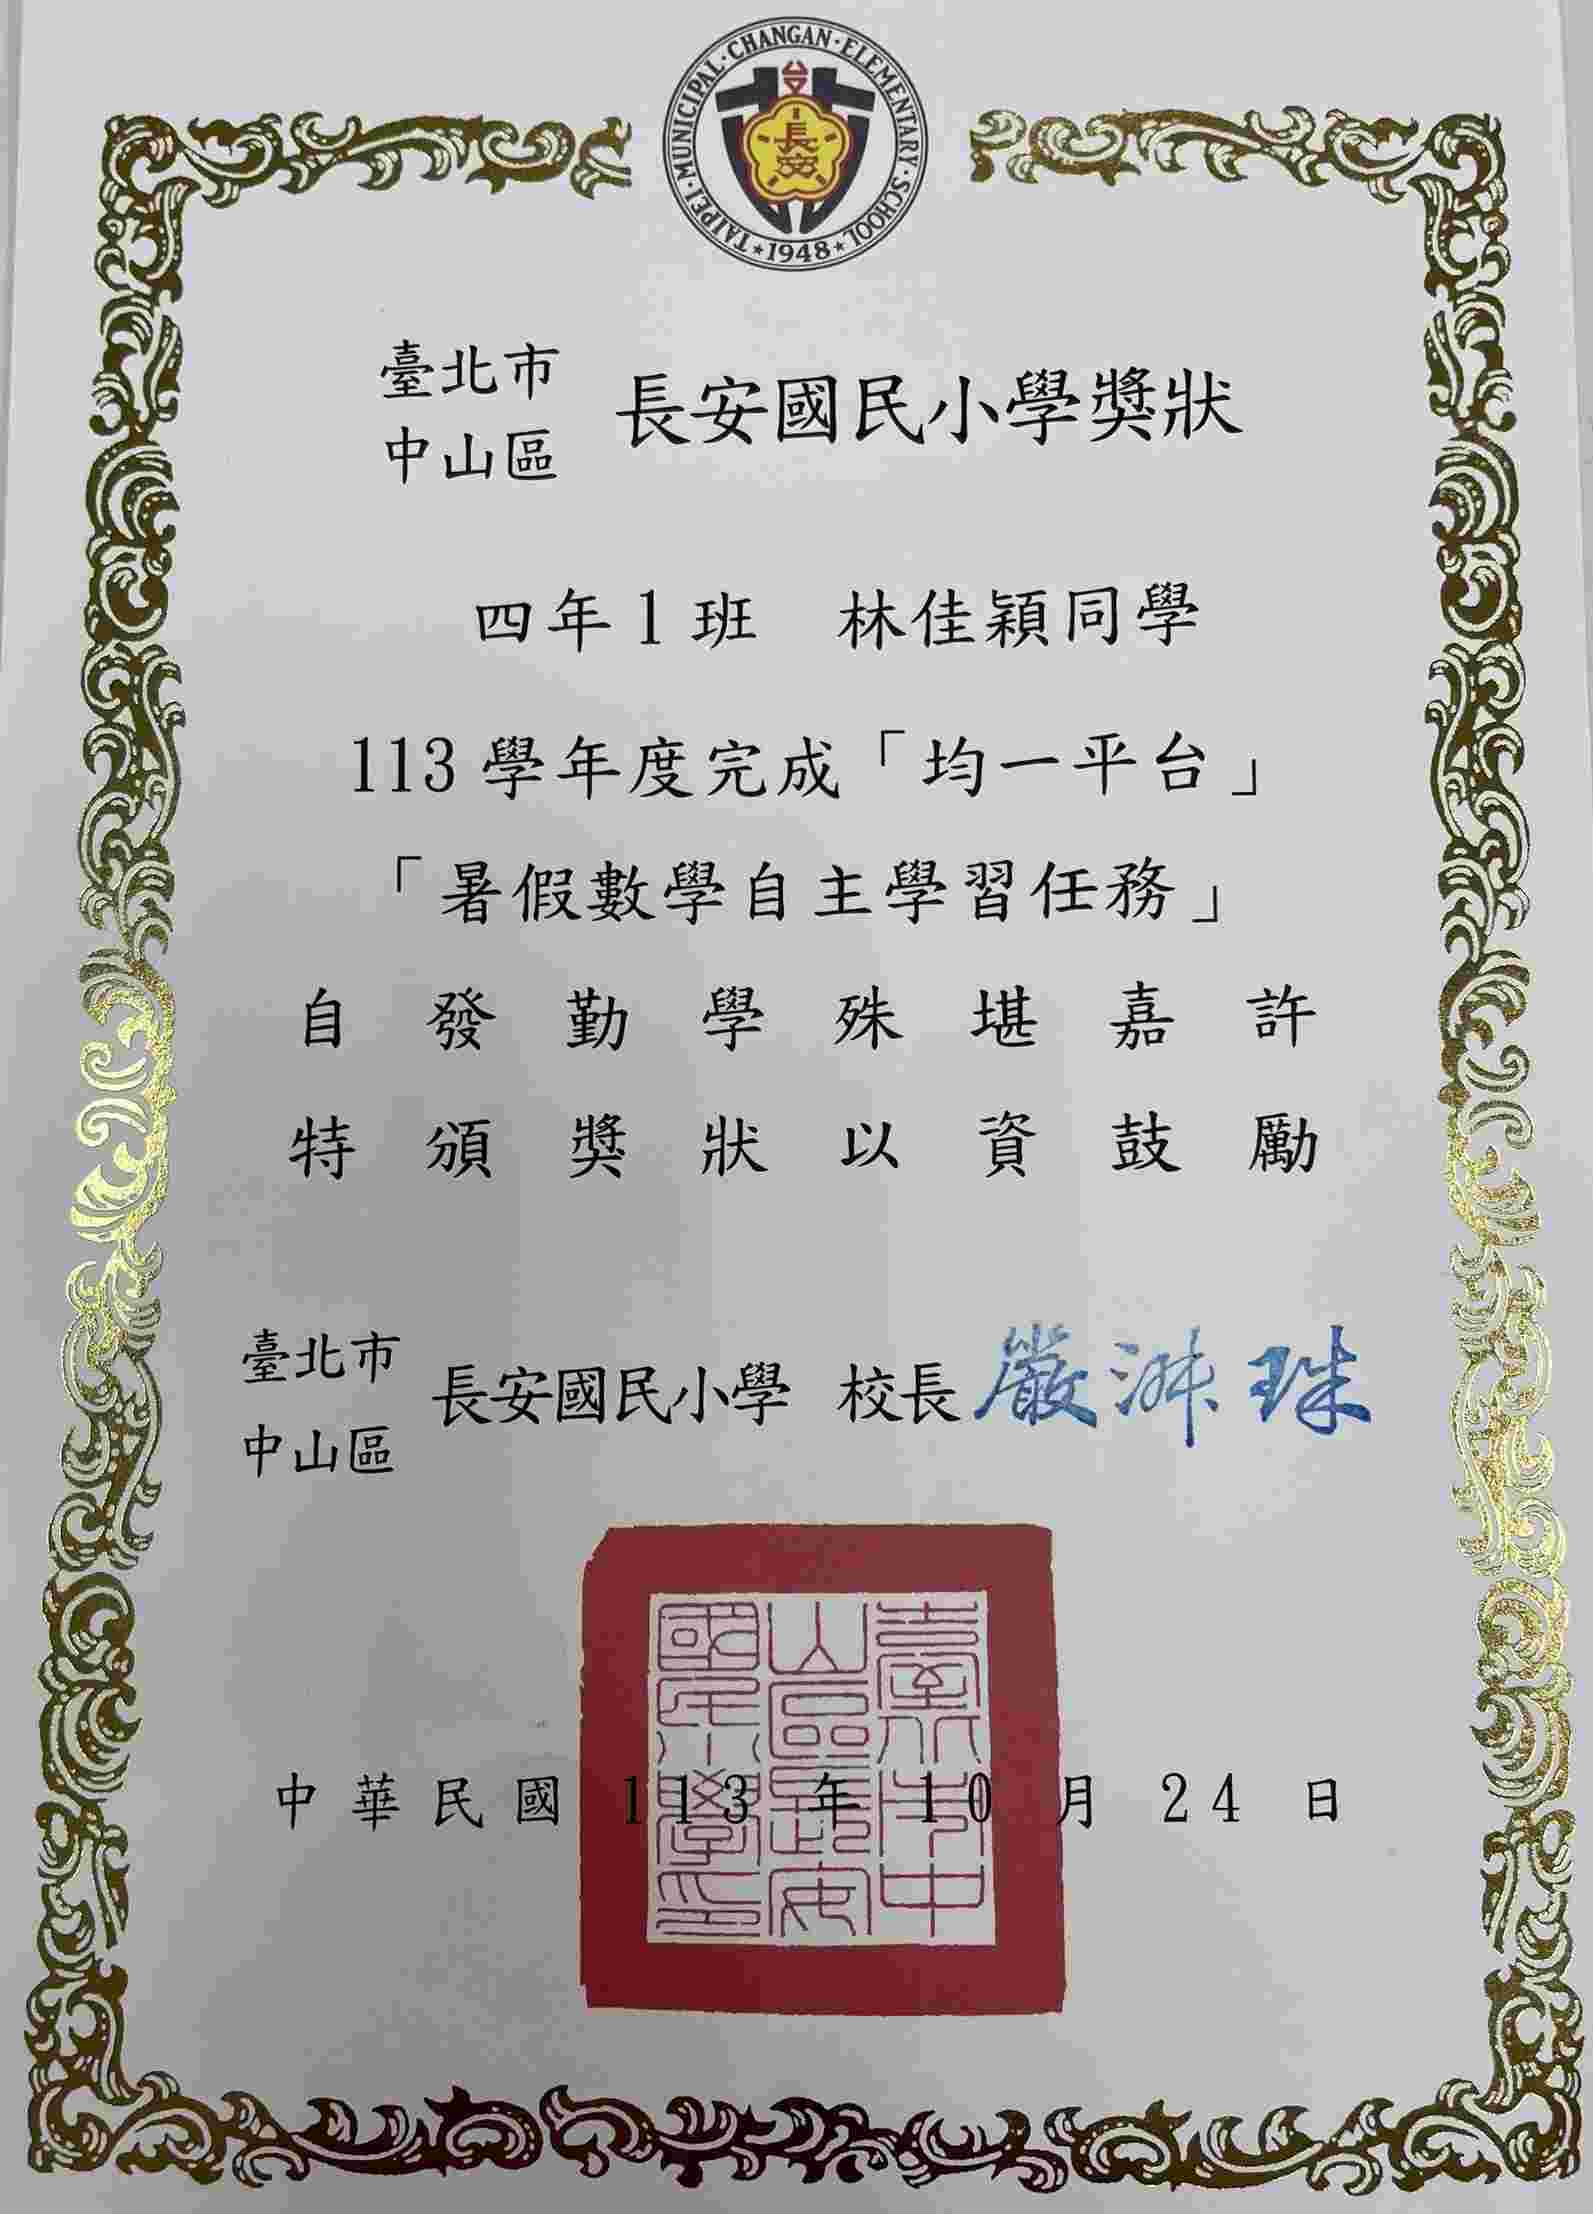 TAIPEI·MUNICIPAL·CHANGAN·ELEMENTARY·SCHOOL
★1948★
台
長安
臺北市
中山區
長安國民小學獎狀
四年1班 林佳穎同學
113學年度完成「均一平台」
「暑假數學自主學習任務」
自發勤學殊堪嘉許
特頒獎狀以資鼓勵
臺北市
中山區
長安國民小學 校長 嚴淑珠
臺北市中
山區長安
國民小學印
中華民國 113 年 10 月 24 日